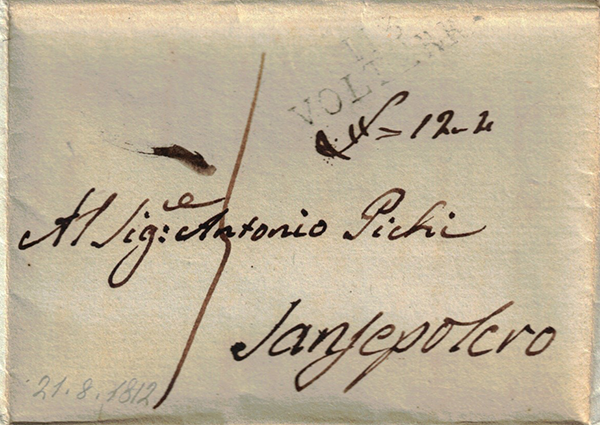 115
VOLTERRA
= 12-4
Al Sig:e Antonio Pichi
Sansepolcro
21.8.1812